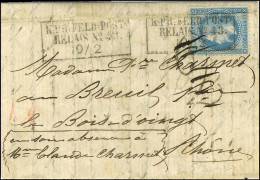 K.PR.FELD-POST
RELAIS No 43.
19/2
K.PR.FELD-POST
RELAIS No 43.
Madame Vve Charmet
au Breuil par
le Bois d'oingt
en son absence à
Mme Claude Charmet Rhône